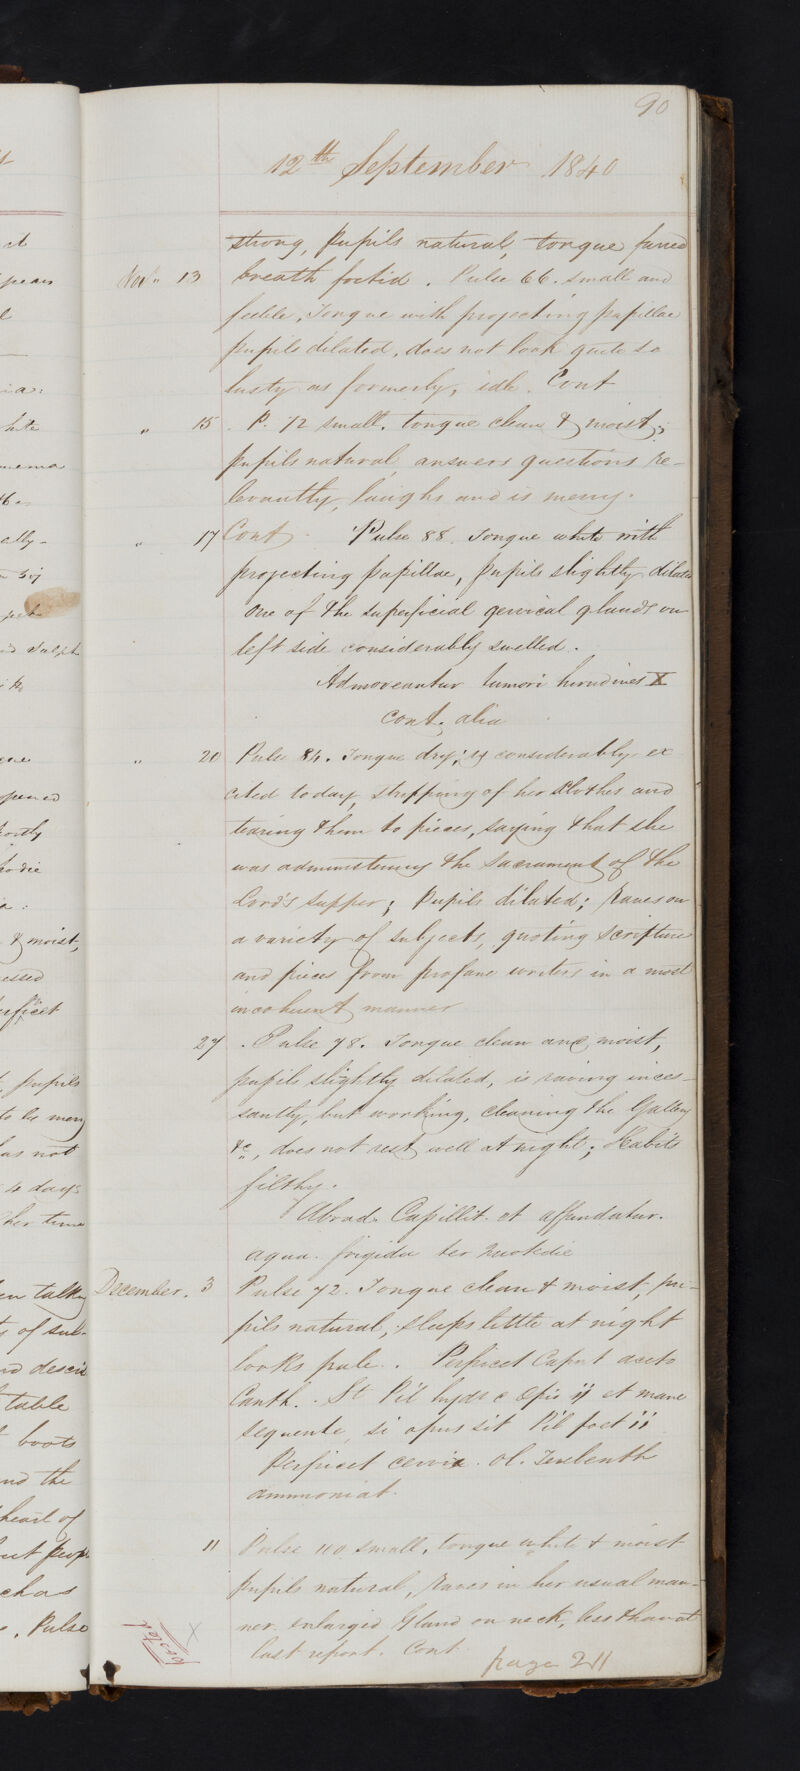 90
12th September 1840
strong, pupils natural, tongue furred
Novr 13 breath foetid. Pulse 66. small and
feeble, Tongue with projecting papillae
pupils dilated, does not look quite so
lusty as formerly, idle. Cont
" 15 . P. 72 small. tongue clean & moist;
pupils natural, answers questions re-
levantly, laughs and is merry.
" 17 Cont Pulse 88. Tongue white with
projecting papillae, pupils slightly dilated
one of the superficial cervical glands on
left side considerably swelled.
Admoveantur tumori hirudines X
cont. alia
" 20 Pulse 84. Tongue dry; is considerably ex
cited today, stripping of her clothes and
tearing them to pieces, saying that she
was administering the sacrament of the
Lord's supper; Pupils dilated; Raves on
a variety of subjects, quoting scripture
and pieces from profane writers in a most
incoherent manner
27 . Pulse 78. Tongue clean and moist,
pupils slightly dilated, is raving inces-
santly, but working, cleaning the Gallery
&c, does not rest well at night; Habits
filthy.
Abrad. Capillit. et affundatur.
aqua. frigida ter quotidie
December. 3 Pulse 72. Tongue clean & moist, pu-
pils natural, sleeps little at night
looks pale. Perfricet Caput aceto
Canth. St Pil hydr c Opio ij et mane
sequente, si opus sit Pil foet ii
Perfricet cervix. ol. Terebenth
ammoniat.
11 Pulse 110 small, tongue white & moist
pupils natural, Raves in her usual man-
ner. enlarged Gland on neck, less than at
last report. Cont.
X
posted
page 211